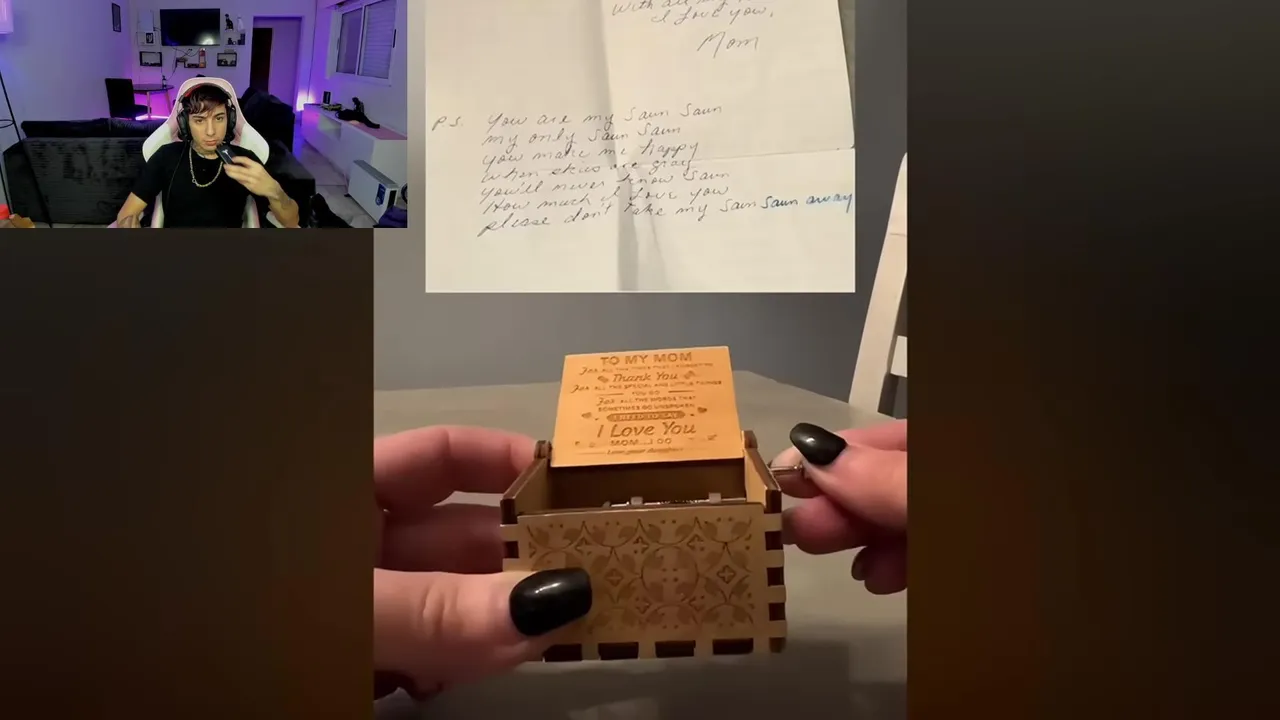 With all my
I Love you,
Mom
P.S. You are my Saun Saun
my only Saun Saun
you make me happy
when skies are gray
You'll never know Saun
How much I Love you
please don't take my Saun Saun away
TO MY MOM
FOR ALL THE TIMES THAT I FORGOT TO
Thank You
FOR ALL THE SPECIAL AND LITTLE THINGS
YOU DO
FOR ALL THE WORDS THAT
SOMETIMES GO UNSPOKEN
I NEED TO SAY
I Love You
MOM...I DO
Love, your daughter